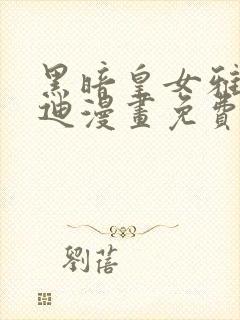 黑暗皇女雅
迪漫畫免費
劉蓓